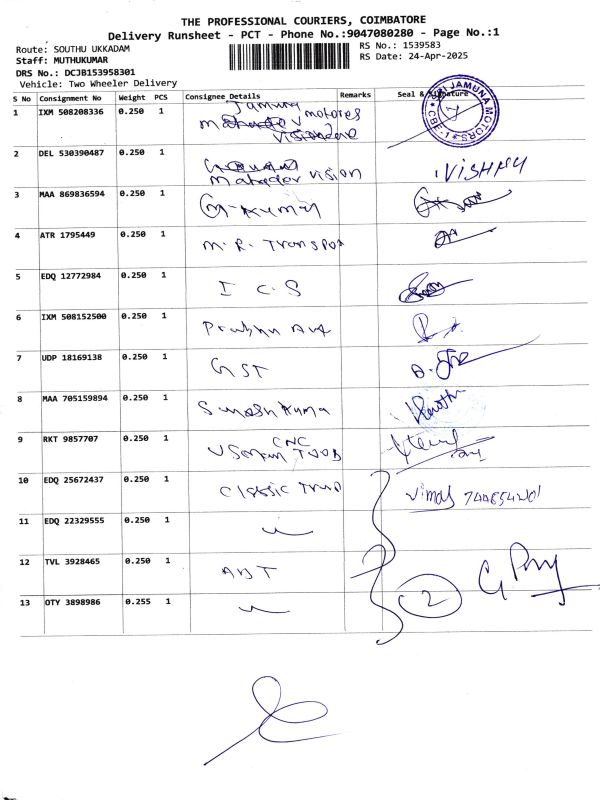 THE PROFESSIONAL COURIERS, COIMBATORE
Delivery Runsheet - PCT - Phone No.:9047080280 - Page No.:1
Route: SOUTHU UKKADAM
RS No.: 1539583
Staff: MUTHUKUMAR
RS Date: 24-Apr-2025
DRS No.: DCJB153958301
Vehicle: Two Wheeler Delivery
S No Consignment No Weight PCS Consignee Details Remarks Seal & Signature
1 IXM 508208336 0.250 1 Jamuna motores
SRI JAMUNA MOTORS CBE-1
2 DEL 530390487 0.250 1 Mahadev vision VISHNU
3 MAA 869836594 0.250 1 G. Kumar
4 ATR 1795449 0.250 1 M. R. Transpot
5 EDQ 12772984 0.250 1 I C S
6 IXM 508152500 0.250 1 Prabhu
7 UDP 18169138 0.250 1 GST
8 MAA 705159894 0.250 1
9 RKT 9857707 0.250 1 CNC
10 EDQ 25672437 0.250 1 Classic Vimal
11 EDQ 22329555 0.250 1
12 TVL 3928465 0.250 1
13 OTY 3898986 0.255 1
2